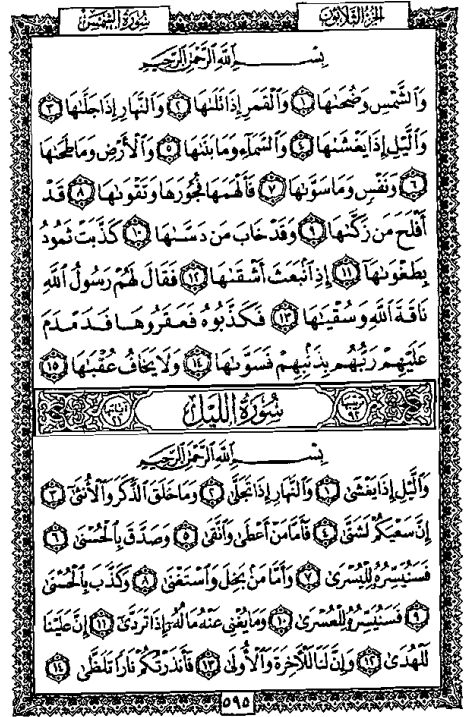 سُورَةُ الشَّمْسِ الجُزْءُ الثَّلَاثُونَ
بِسْمِ اللَّهِ الرَّحْمَٰنِ الرَّحِيمِ
وَٱلشَّمْسِ وَضُحَىٰهَا ١ وَٱلْقَمَرِ إِذَا تَلَىٰهَا ٢ وَٱلنَّهَارِ إِذَا جَلَّىٰهَا ٣
وَٱلَّيْلِ إِذَا يَغْشَىٰهَا ٤ وَٱلسَّمَآءِ وَمَا بَنَىٰهَا ٥ وَٱلْأَرْضِ وَمَا طَحَىٰهَا
٦ وَنَفْسٍ وَمَا سَوَّىٰهَا ٧ فَأَلْهَمَهَا فُجُورَهَا وَتَقْوَىٰهَا ٨ قَدْ
أَفْلَحَ مَن زَكَّىٰهَا ٩ وَقَدْ خَابَ مَن دَسَّىٰهَا ١٠ كَذَّبَتْ ثَمُودُ
بِطَغْوَىٰهَآ ١١ إِذِ ٱنۢبَعَثَ أَشْقَىٰهَا ١٢ فَقَالَ لَهُمْ رَسُولُ ٱللَّهِ
نَاقَةَ ٱللَّهِ وَسُقْيَٰهَا ١٣ فَكَذَّبُوهُ فَعَقَرُوهَا فَدَمْدَمَ
عَلَيْهِمْ رَبُّهُم بِذَنۢبِهِمْ فَسَوَّىٰهَا ١٤ وَلَا يَخَافُ عُقْبَٰهَا ١٥
ترتيبها ٩٢ سُورَةُ اللَّيْلِ آياتها ٢١
بِسْمِ اللَّهِ الرَّحْمَٰنِ الرَّحِيمِ
وَٱلَّيْلِ إِذَا يَغْشَىٰ ١ وَٱلنَّهَارِ إِذَا تَجَلَّىٰ ٢ وَمَا خَلَقَ ٱلذَّكَرَ وَٱلْأُنثَىٰٓ ٣
إِنَّ سَعْيَكُمْ لَشَتَّىٰ ٤ فَأَمَّا مَنْ أَعْطَىٰ وَٱتَّقَىٰ ٥ وَصَدَّقَ بِٱلْحُسْنَىٰ ٦
فَسَنُيَسِّرُهُۥ لِلْيُسْرَىٰ ٧ وَأَمَّا مَنۢ بَخِلَ وَٱسْتَغْنَىٰ ٨ وَكَذَّبَ بِٱلْحُسْنَىٰ
٩ فَسَنُيَسِّرُهُۥ لِلْعُسْرَىٰ ١٠ وَمَا يُغْنِى عَنْهُ مَالُهُۥٓ إِذَا تَرَدَّىٰٓ ١١ إِنَّ عَلَيْنَا
لَلْهُدَىٰ ١٢ وَإِنَّ لَنَا لَلْءَاخِرَةَ وَٱلْأُولَىٰ ١٣ فَأَنذَرْتُكُمْ نَارًا تَلَظَّىٰ ١٤
٥٩٥